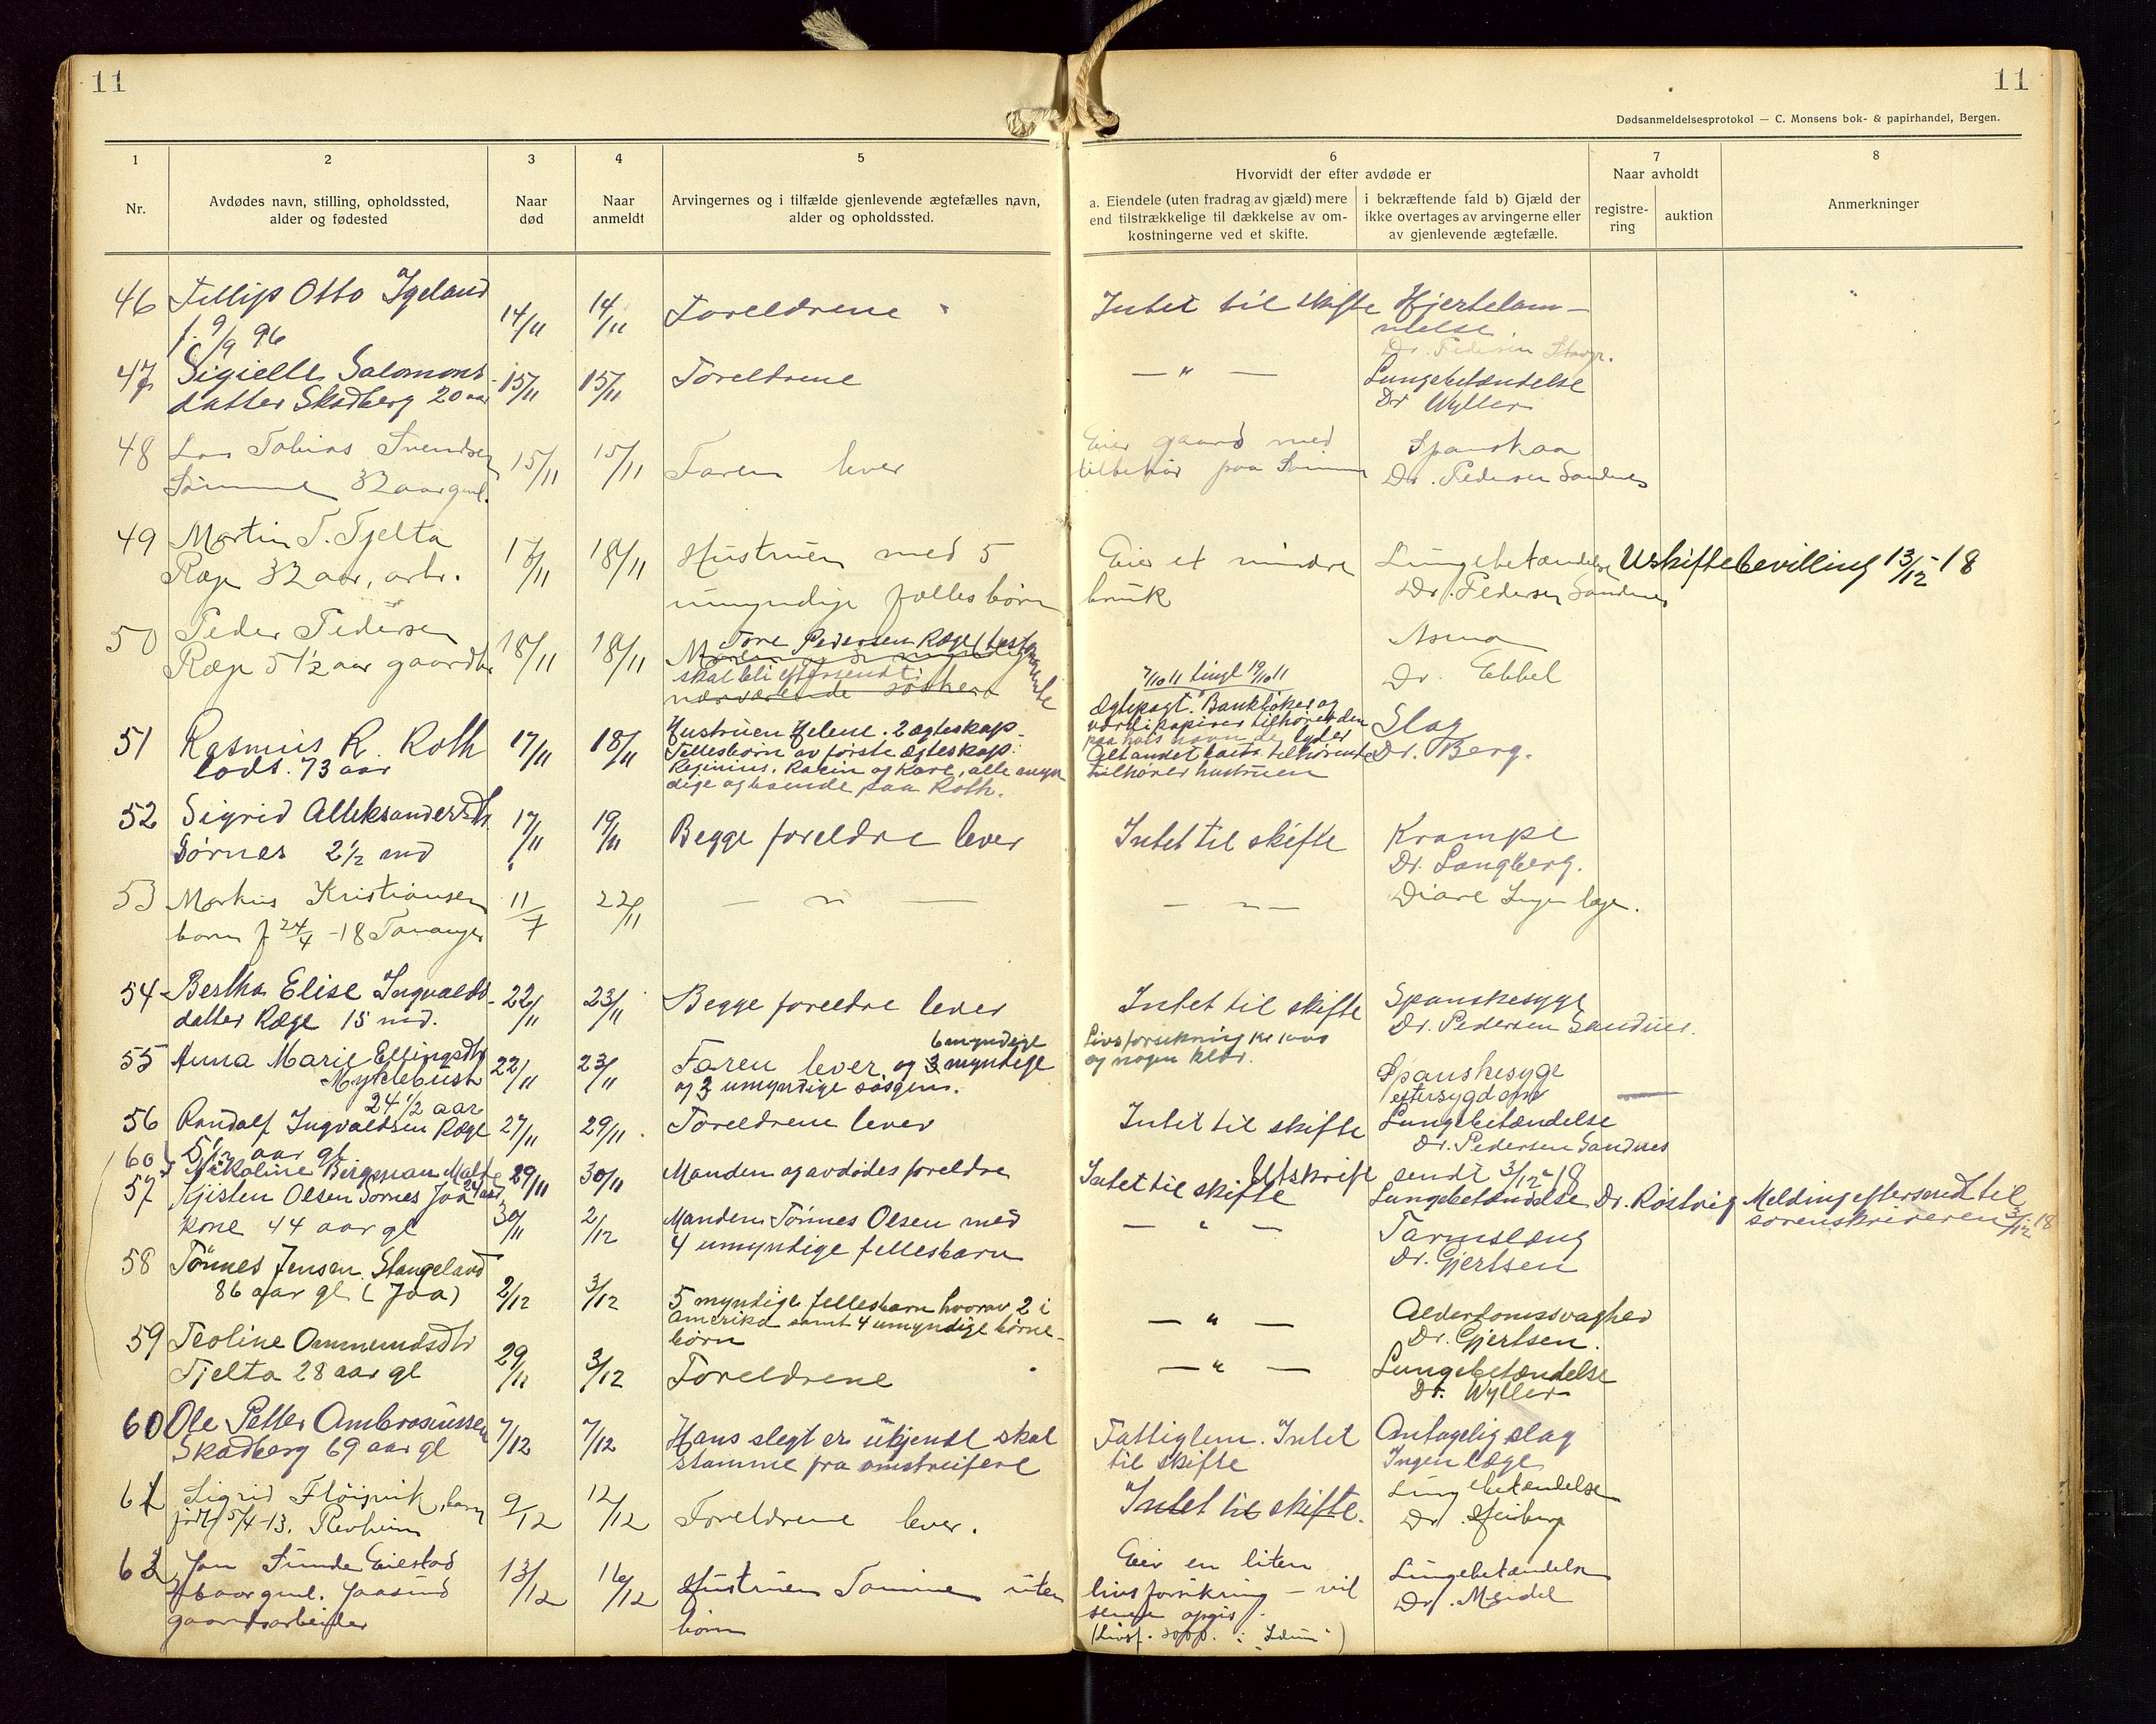 11
11
Dødsanmeldelsesprotokol — C. Monsens bok- & papirhandel, Bergen.
1 2 3 4 5 6 7 8
Nr.
Avdødes navn, stilling, opholdssted,
alder og fødested
Naar
død
Naar
anmeldt
Arvingernes og i tilfælde gjenlevende ægtefælles navn,
alder og opholdssted.
Hvorvidt der efter avdøde er
a. Eiendele (uten fradrag av gjæld) mere
end tilstrækkelige til dækkelse av om-
kostningerne ved et skifte.
i bekræftende fald b) Gjæld der
ikke overtages av arvingerne eller
av gjenlevende ægtefælle.
Naar avholdt
registre-
ring
auktion
Anmerkninger
46 Fillip Otto Igeland 14/11 14/11 Foreldrene Intet til skifte Hjertelam-
f. 9/9 96 melse
Dr. Pedersen Stavgr.
47 Sigielle Salomons- 15/11 15/11 Foreldrene — " — Lungebetændelse
datter Skadberg 20 aar Dr Wyller
48 Tobias Svendsen 15/11 15/11 Faren lever Eier gaard med Spanskaa
Sømme 32 aar gml. tilbehør paa Sømme Dr. Pedersen Sandnes
49 Martin T. Tjelta 17/11 18/11 Hustruen med 5 Eier et mindre Lungebetændelse Uskiftebevilling 13/12-18
Ræge 32 aar, arb. umyndige fælles børn bruk Dr. Pedersen Sandnes
50 Peder Pedersen 18/11 18/11 Tore Pedersen Ræge (testamente Asma
Ræge 51½ aar gaardbr. skal bli eftersendt Dr. Ebbel
nærværende
7/10 11 tingl 19/10 11
51 Rasmus R. Roth 17/11 18/11 Hustruen Helene. 2 ægteskap. Ægtepagt. Bankbøker og Slag
lods. 73 aar Fellesborn av første ægteskap: værdipapirer tilhører den Dr. Berg.
Reginius, Karin og Kare, alle myn- paa hvis navn de lyder
dige og boende paa Roth. Alt andet
tilhører hustruen
52 Sigrid Alleksandersdtr 17/11 19/11 Begge foreldre lever Intet til skifte Krampe
Sørnes 2½ md Dr. Langberg.
53 Markus Kristiansen 11/7 22/11 — " — — " — Diare Ingen læge.
barn f 24/4 -18 Tananger
54 Bertha Elise Ingvalds- 22/11 23/11 Begge foreldre lever Intet til skifte Spanskesyge
datter Ræge 15 md. Dr. Pedersen Sandnes.
55 Anna Marie Ellingsdtr 22/11 23/11 Faren lever og 3 myndige Livsforsikring kr 1000 Spanskesyge
Myklebust 6 myndige
24½ aar og 3 umyndige søsgen. og nogen klær. eftersygdom
56 Randalf Ingvaldsen Ræge 27/11 29/11 Foreldrene lever Intet til skifte Lungebetændelse
5½ aar gl Dr. Pedersen Sandnes
60 Nikoline Bergman Malde 29/11 30/11 Manden og avdødes foreldre Intet til skifte Utskrift sendt 3/12-18
Lungebetændelse Dr. Röstvig Meldingeftersendt til
sorenskriveren 3/12 18
57 Kjisten Olsen Sørnes Jaa 30/11 2/12 Manden Tönnes Olsen med — " — Tarmslæng
kone 44 aar gl 4 umyndige fellesbarn Dr. Gjertsen
58 Tönnes Jensen Stangeland 2/12 3/12 5 myndige fellesbarn hvorav 2 i — " — Alderdomssvaghed
86 aar gl (Jaa) Amerika samt 4 umyndige börne- Dr. Gjertsen.
börn
59 Teoline Ommundsdtr 29/11 3/12 Foreldrene — " — Lungebetændelse
Tjelta 28 aar gl Dr. Wyller
60 Ole Petter Ambrosiussen 7/12 7/12 Hans slegt er ukjendt skal Fattiglem. Intet Antagelig slag
Skadberg 69 aar gl stamme fra omstreifere til skifte Ingen læge
61 Sigrid Fløisvik, barn 9/12 12/12 Foreldrene lever. Intet til skifte. Lungebetændelse
5/4-13. Revheim Dr.
62 Jon Sunde Eiestad 13/12 16/12 Hustruen uten Eier en liten Lungebetændelse
aar gml. Jaasund børn livsforsikring — vil Dr.
gaardsarbeider senere opgis.